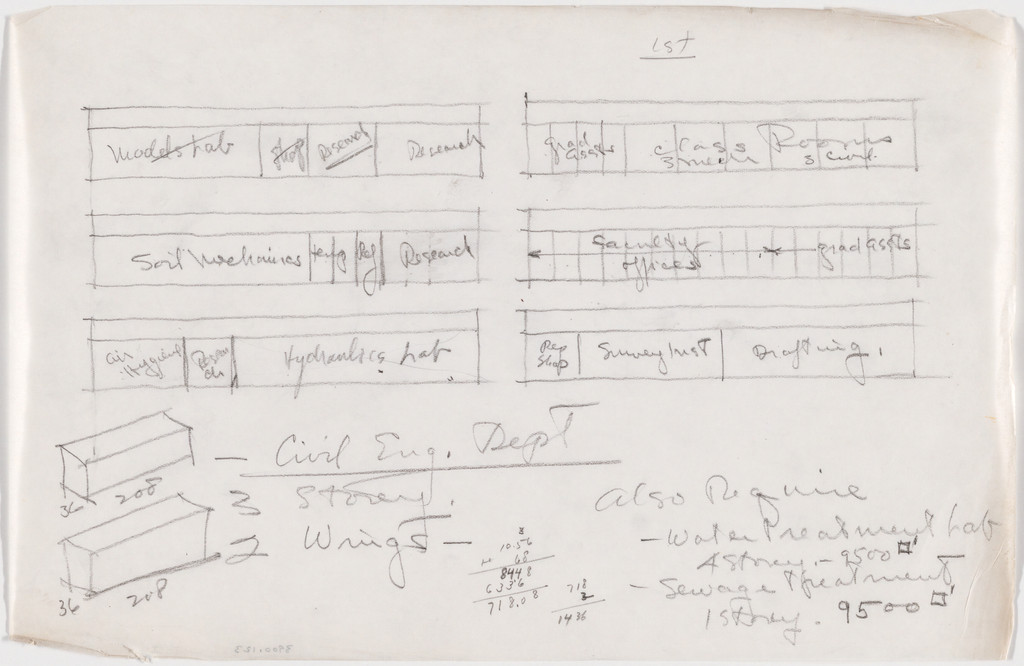 1st
Models Lab Shop Research Research
grad assts class Rooms
3 mech 3 civil.
Soil Mechanics Research
Faculty offices grad assts
Air Hygiene Resear ch Hydraulics Lab
Rep Shop Survey Inst Drafting.
36 208
36 208
— Civil Eng. Dept
3 Storey.
2 Wings —
8
10.56
68
8448
6336
718.08
718
2
1436
Also Require
— Water Treatment Lab
1 Storey. — 9500 □'
— Sewage Treatment
1 Storey. 9500 □'